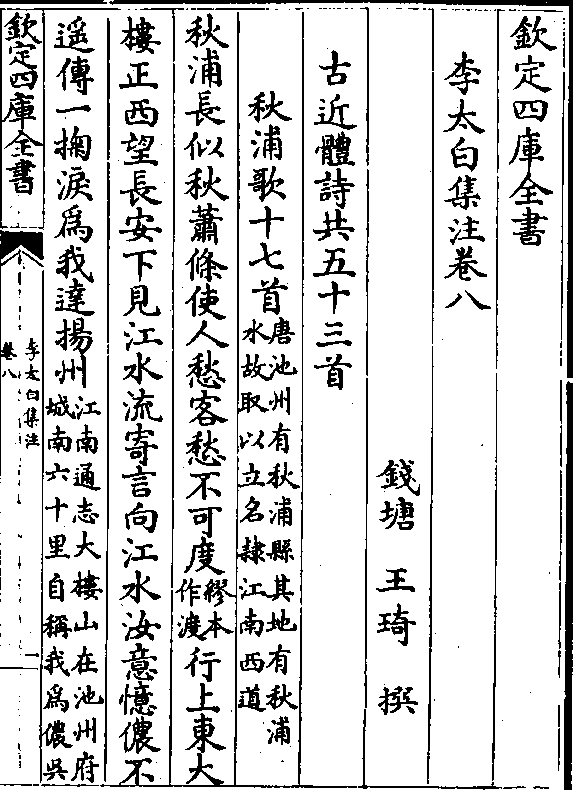 欽定四庫全書
李太白集注卷八
錢塘 王琦 撰
古近體詩共五十三首
秋浦歌十七首
唐池州有秋浦縣其地有秋浦
水故取以立名隸江南西道
秋浦長似秋蕭條使人愁客愁不可度
繆本
作渡
行上東大
樓正西望長安下見江水流寄言向江水汝意憶儂不
遥傳一掬淚為我達揚州
江南通志大樓山在池州府
城南六十里自稱我為儂吳
欽定四庫全書
李太白集注
卷八
一